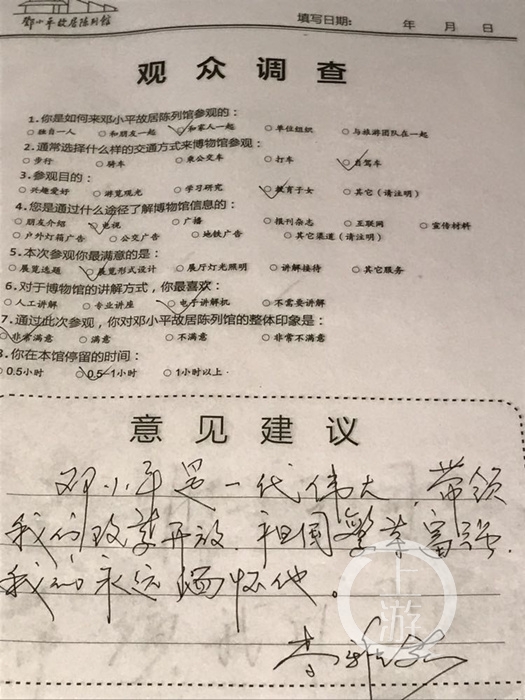 邓小平故居陈列馆
填写日期: 年 月 日
观众调查
1.你是如何来邓小平故居陈列馆参观的:
○独自一人 ○和朋友一起 ○和家人一起 ○单位组织 ○与旅游团队在一起
2.通常选择什么样的交通方式来博物馆参观:
○步行 ○骑车 ○乘公交车 ○打车 ○自驾车
3.参观目的:
○兴趣爱好 ○游览观光 ○学习研究 ○教育子女 ○其它(请注明)
4.您是通过什么途径了解博物馆信息的:
○朋友介绍 ○电视 ○广播 ○报刊杂志 ○互联网 ○宣传材料
○户外灯箱广告 ○公交广告 ○地铁广告 ○其它渠道(请注明)
5.本次参观你最满意的是:
○展览选题 ○展览形式设计 ○展厅灯光照明 ○讲解接待 ○其它服务
6.对于博物馆的讲解方式,你最喜欢:
○人工讲解 ○专业讲座 ○电子讲解机 ○不需要讲解
7.通过此次参观,你对邓小平故居陈列馆的整体印象是:
○非常满意 ○满意 ○不满意 ○非常不满意
8.你在本馆停留的时间:
○0.5小时 ○0.5-1小时 ○1小时以上
意见建议
邓小平是一代伟大,带领
我们改革开放.祖国繁荣富强.
我们永远缅怀他。
上游